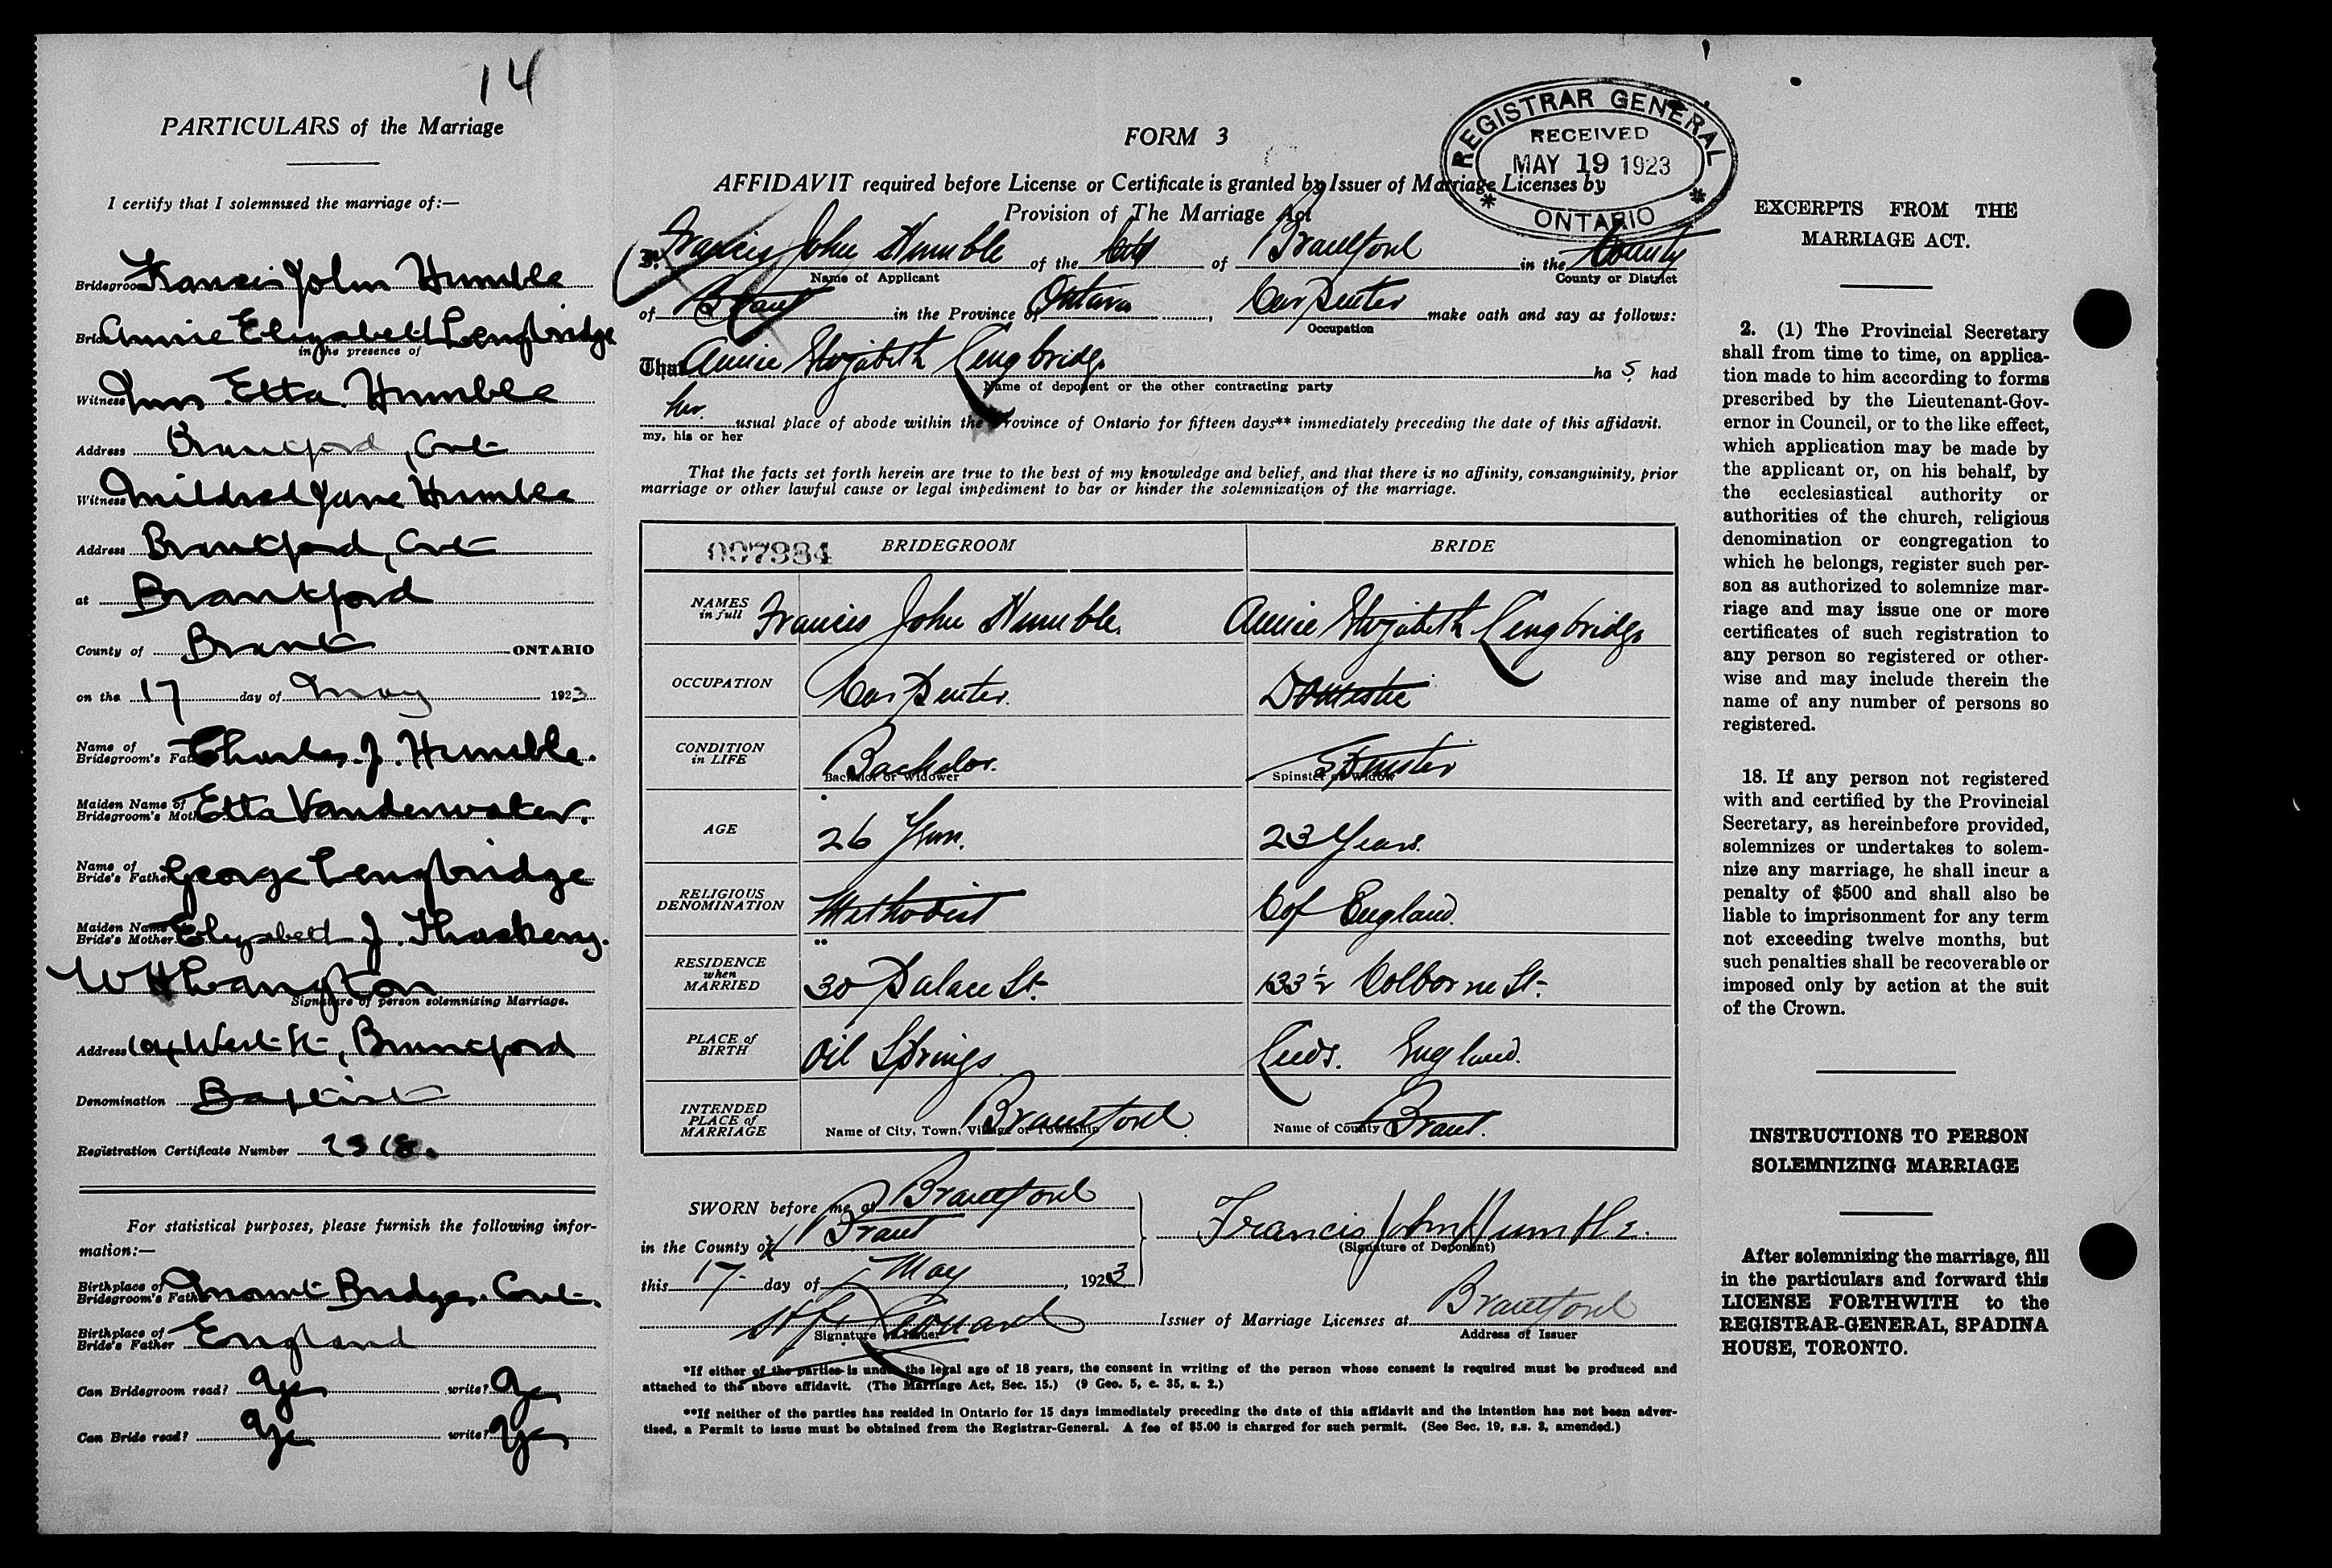 14
PARTICULARS of the Marriage
I certify that I solemnized the marriage of:—
Bridegroom Francis John Humble
Bride Annie Elizabeth Lengbridge
in the presence of
Witness Mrs. Etta Humble
Address Brantford, Ont
Witness Mildred Jane Humble
Address Brantford, Ont
at Brantford
County of Brant ONTARIO
on the 17 day of May 1923
Name of Bridegroom's Father Charles J. Humble.
Maiden Name of Bridegroom's Mother Etta Vanderwater.
Name of Bride's Father George Lengbridge
Maiden Name of Bride's Mother Elizabeth J. Thackery.
W H Langton
Signature of person solemnizing Marriage.
Address West St, Brantford
Denomination Baptist
Registration Certificate Number
For statistical purposes, please furnish the following infor-
mation:—
Birthplace of Bridegroom's Father Mount Bridges. Ont.
Birthplace of Bride's Father England
Can Bridegroom read? Yes write? Yes
Can Bride read? Yes write? Yes
FORM 3
REGISTRAR GENERAL
RECEIVED
MAY 19 1923
ONTARIO
AFFIDAVIT required before License or Certificate is granted by Issuer of Marriage Licenses by
Provision of The Marriage Act
I, Francis John Humble of the City of Brantford in the County
Name of Applicant County or District
of Brant in the Province of Ontario, Carpenter make oath and say as follows:
Occupation
That Annie Elizabeth Lengbridge ha s had
Name of deponent or the other contracting party
her usual place of abode within the Province of Ontario for fifteen days** immediately preceding the date of this affidavit.
my, his or her
That the facts set forth herein are true to the best of my knowledge and belief, and that there is no affinity, consanguinity, prior
marriage or other lawful cause or legal impediment to bar or hinder the solemnization of the marriage.
007984 BRIDEGROOM BRIDE
NAMES in full Francis John Humble. Annie Elizabeth Lengbridge
OCCUPATION Carpenter. Domestic
CONDITION in LIFE Bachelor. Spinster
Bachelor or Widower Spinster or Widow
AGE 26 Years. 23 Years.
RELIGIOUS DENOMINATION Methodist C of England.
RESIDENCE when MARRIED 30 Palace St. 133½ Colborne St.
PLACE of BIRTH Oil Springs Leeds. England.
INTENDED PLACE of MARRIAGE Brantford. Brant.
Name of City, Town, Village or Township Name of County
SWORN before me at Brantford
in the County of Brant
Francis John Humble.
(Signature of Deponent)
this 17 day of May, 1923
Signature of Issuer
Issuer of Marriage Licenses at Brantford
Address of Issuer
*If either of the parties is under the legal age of 18 years, the consent in writing of the person whose consent is required must be produced and
attached to the above affidavit. (The Marriage Act, Sec. 15.) (9 Geo. 5, c. 35, s. 2.)
**If neither of the parties has resided in Ontario for 15 days immediately preceding the date of this affidavit and the intention has not been adver-
tised, a Permit to issue must be obtained from the Registrar-General. A fee of $5.00 is charged for such permit. (See Sec. 19, s.s. 3, amended.)
EXCERPTS FROM THE
MARRIAGE ACT.
2. (1) The Provincial Secretary
shall from time to time, on applica-
tion made to him according to forms
prescribed by the Lieutenant-Gov-
ernor in Council, or to the like effect,
which application may be made by
the applicant or, on his behalf, by
the ecclesiastical authority or
authorities of the church, religious
denomination or congregation to
which he belongs, register such per-
son as authorized to solemnize mar-
riage and may issue one or more
certificates of such registration to
any person so registered or other-
wise and may include therein the
name of any number of persons so
registered.
18. If any person not registered
with and certified by the Provincial
Secretary, as hereinbefore provided,
solemnizes or undertakes to solem-
nize any marriage, he shall incur a
penalty of $500 and shall also be
liable to imprisonment for any term
not exceeding twelve months, but
such penalties shall be recoverable or
imposed only by action at the suit
of the Crown.
INSTRUCTIONS TO PERSON
SOLEMNIZING MARRIAGE
After solemnizing the marriage, fill
in the particulars and forward this
LICENSE FORTHWITH to the
REGISTRAR-GENERAL, SPADINA
HOUSE, TORONTO.